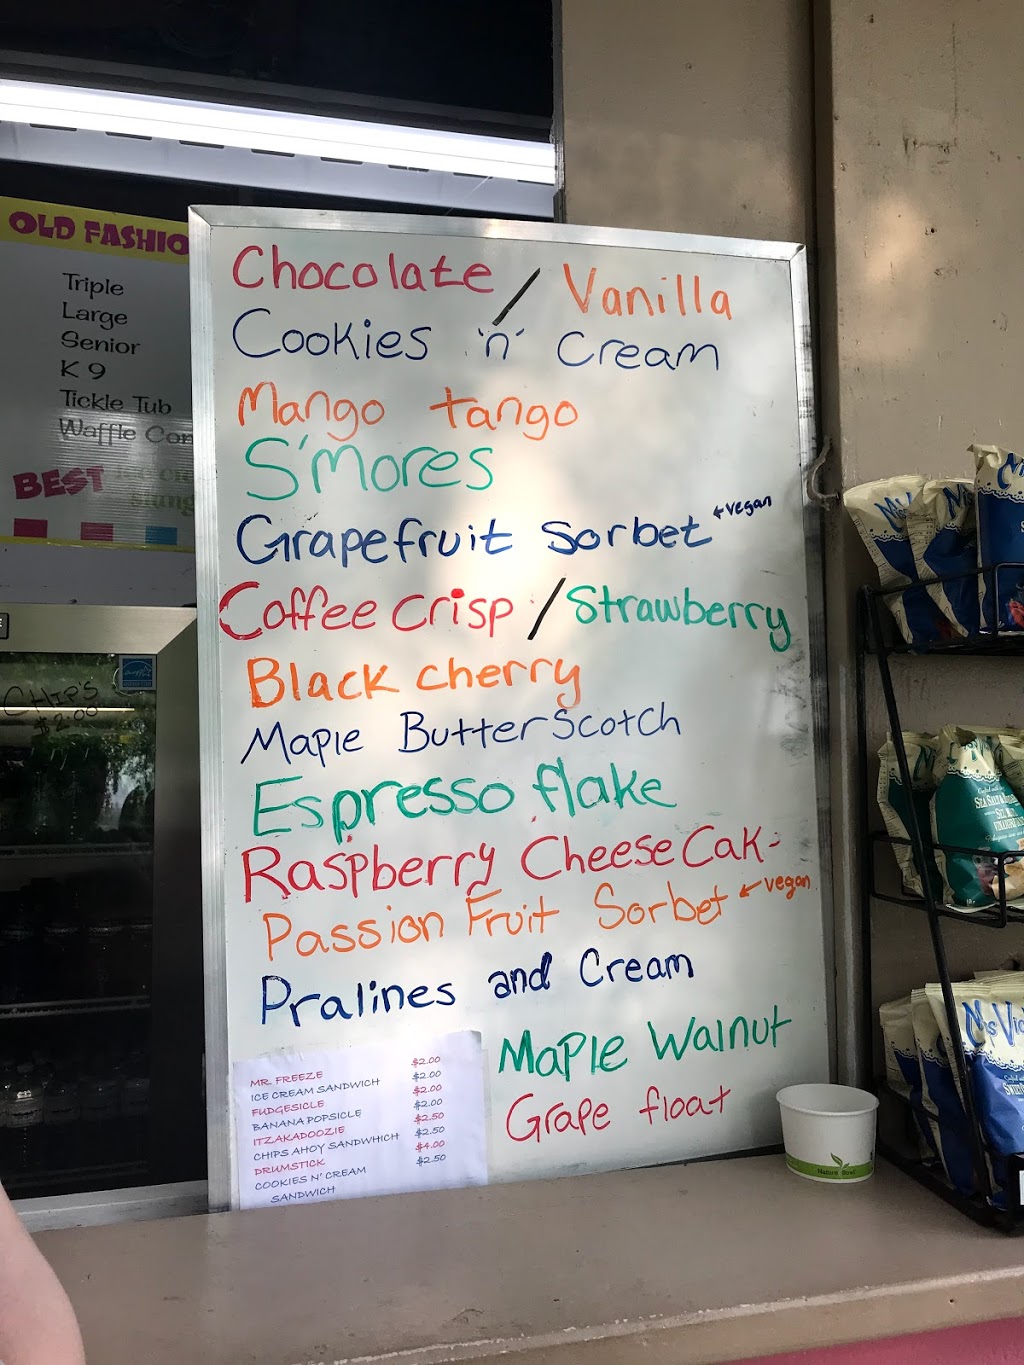 OLD FASHIO
Triple
Large
Senior
K 9
Tickle Tub
Waffle Con
BEST
CHIP'S
$2.00
Chocolate / Vanilla
Cookies 'n' Cream
Mango tango
S'mores
Grapefruit Sorbet ← vegan
Coffee Crisp / Strawberry
Black cherry
Maple Butterscotch
Espresso flake
Raspberry CheeseCak
Passion Fruit Sorbet ← vegan
Pralines and Cream
Maple Walnut
Grape float
MR. FREEZE $2.00
ICE CREAM SANDWICH $2.00
FUDGESICLE $2.00
BANANA POPSICLE $2.00
ITZAKADOOZIE $2.50
CHIPS AHOY SANDWHICH $2.50
DRUMSTICK $4.00
COOKIES N' CREAM $2.50
SANDWICH
Nature Bowl
Ms Vic